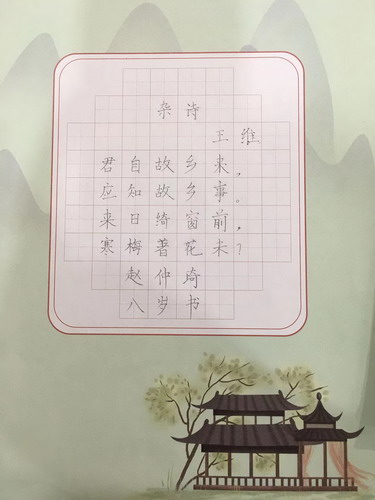 杂诗
王维
君自故乡来，
应知故乡事。
来日绮窗前，
寒梅著花未？
赵仲琦
八岁书